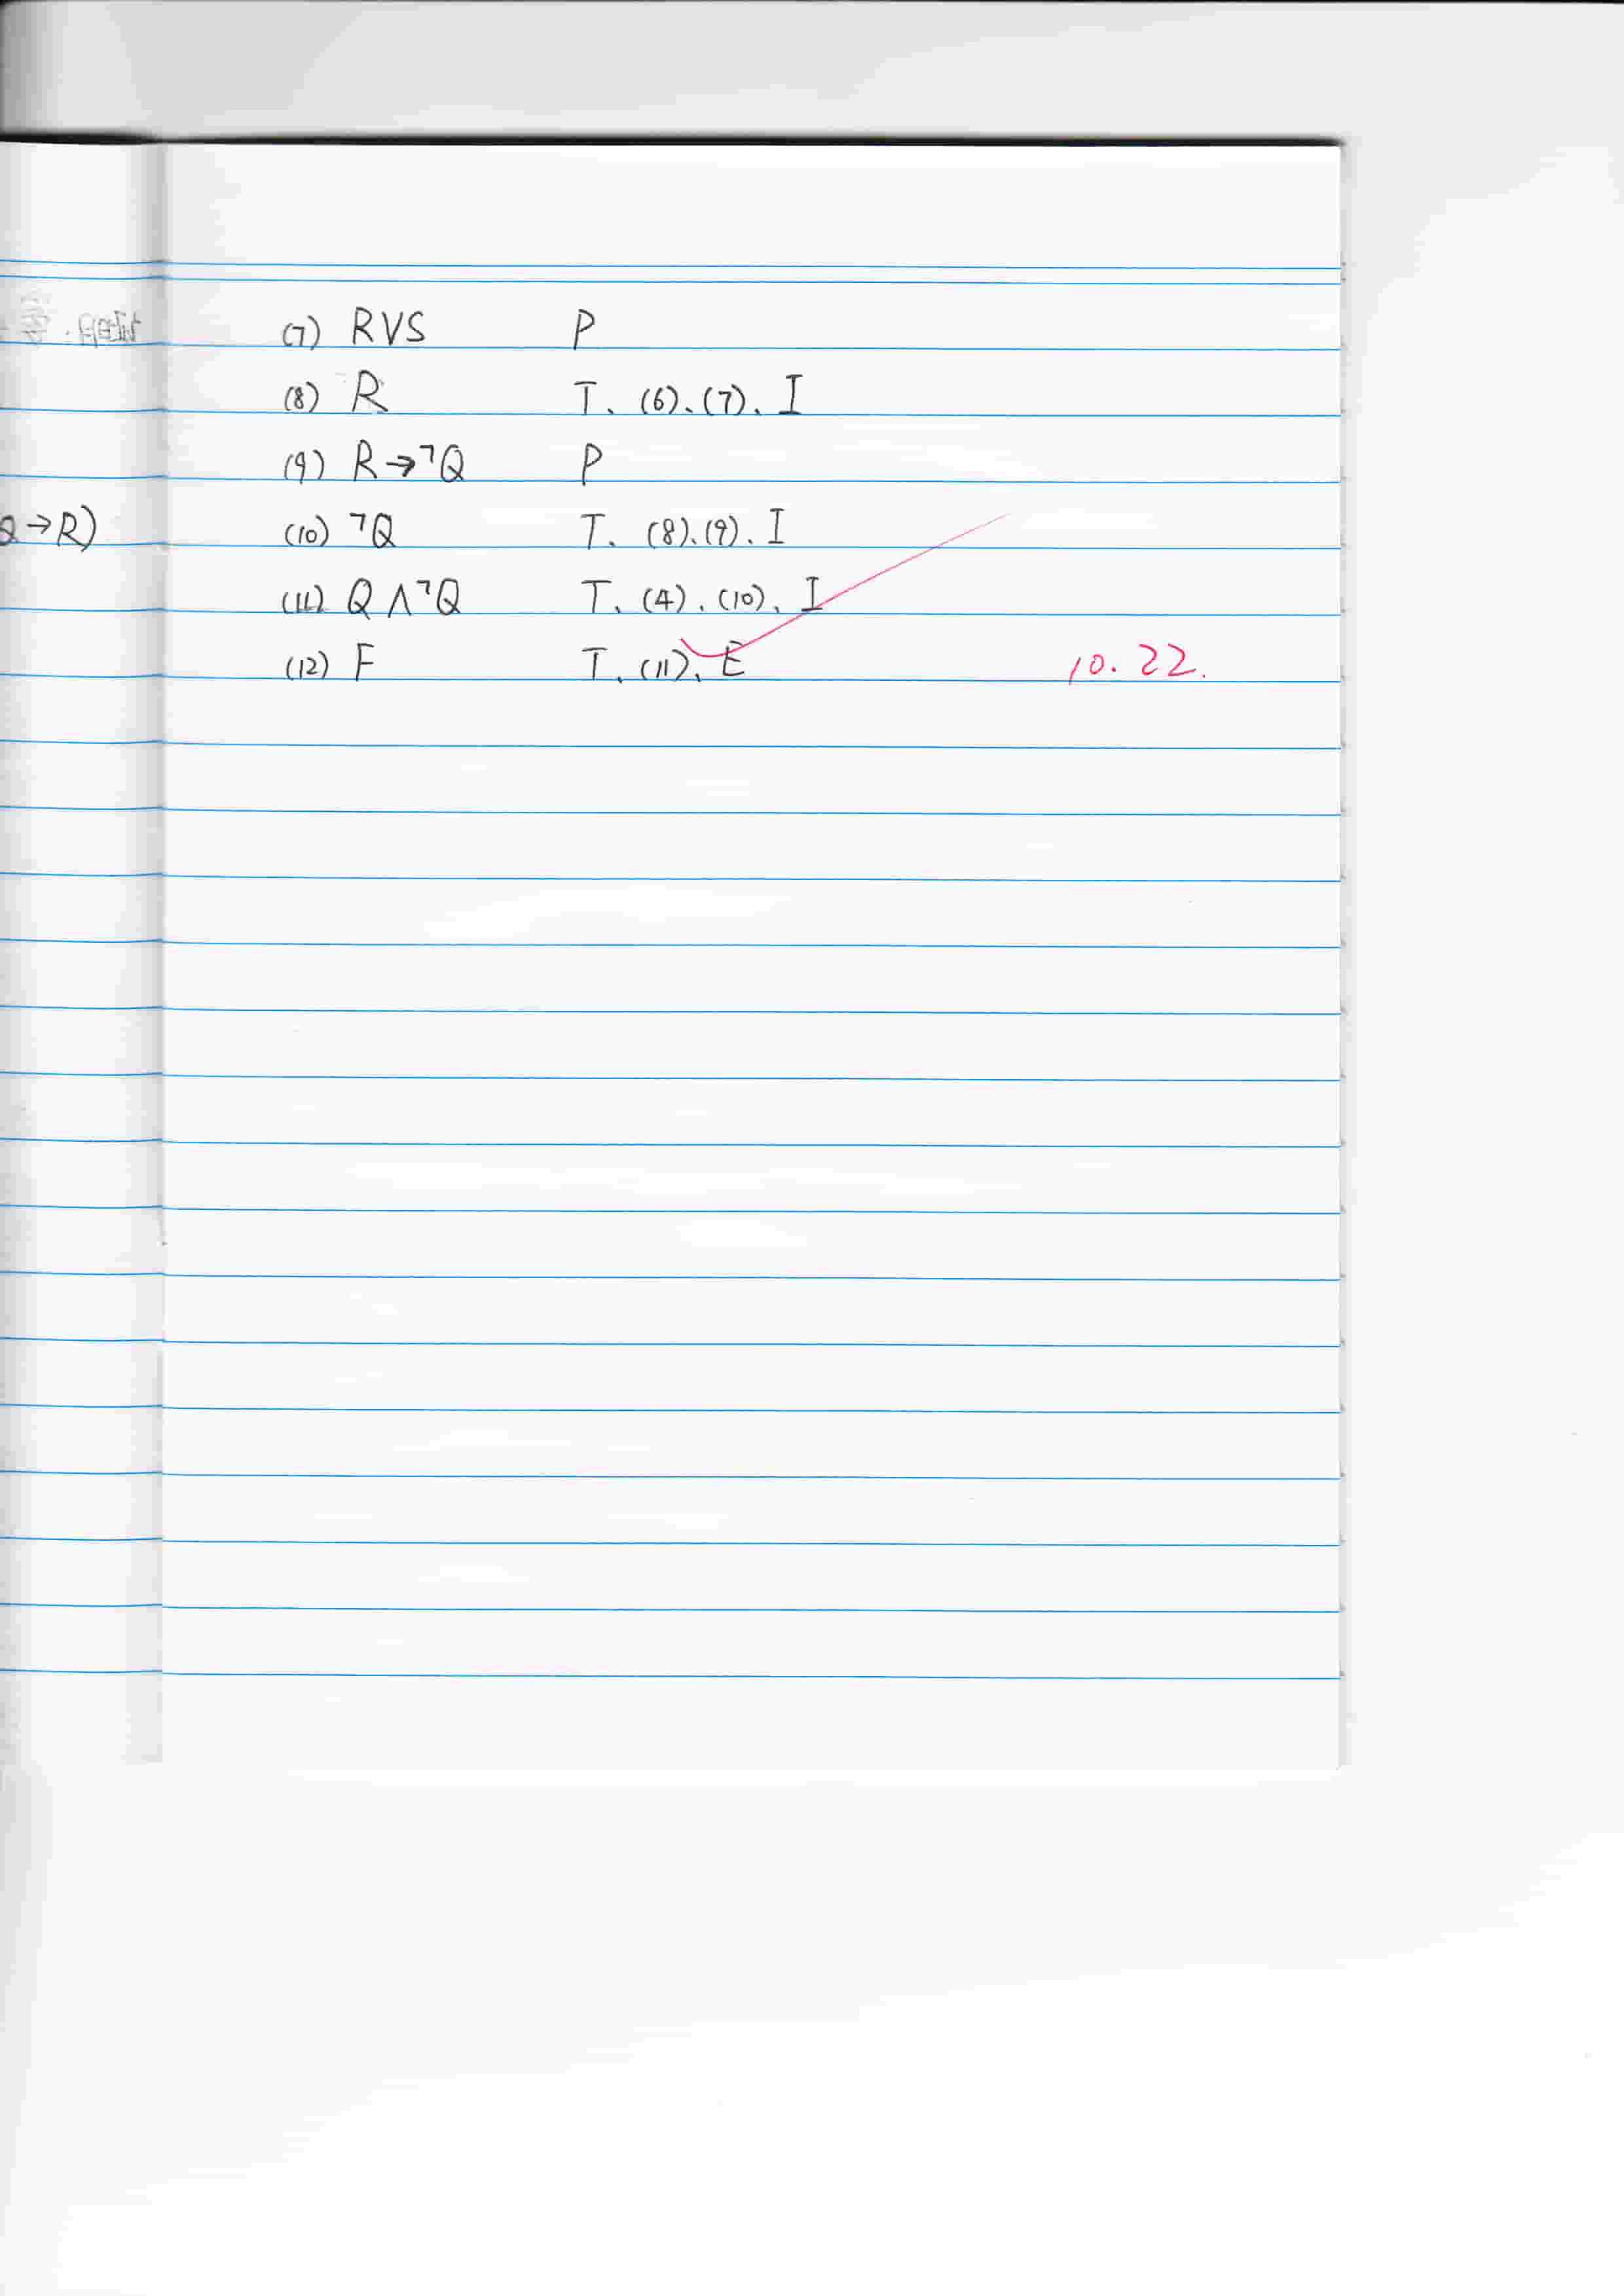 (7) R∨S P
(8) R T、(6)、(7)、I
(9) R→¬Q P
Q→R)
(10) ¬Q T、(8)、(9)、I
(11) Q∧¬Q T、(4)、(10)、I
(12) F T、(11)、E
10.22.